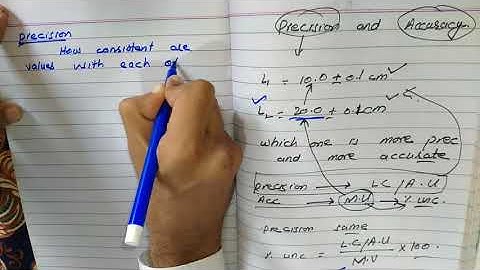 precision
How consistent are
values with each o
Precision and Accuracy.
L₁ = 10.0 ± 0.1 cm ✓
✓ L₂ = 20.0 ± 0.1cm ✓
which one is more prec
and more accurate
precision → L.C/A.U
Acc → M.V → % unc.
precision same
% unc = L.C/A.U / M.V × 100.